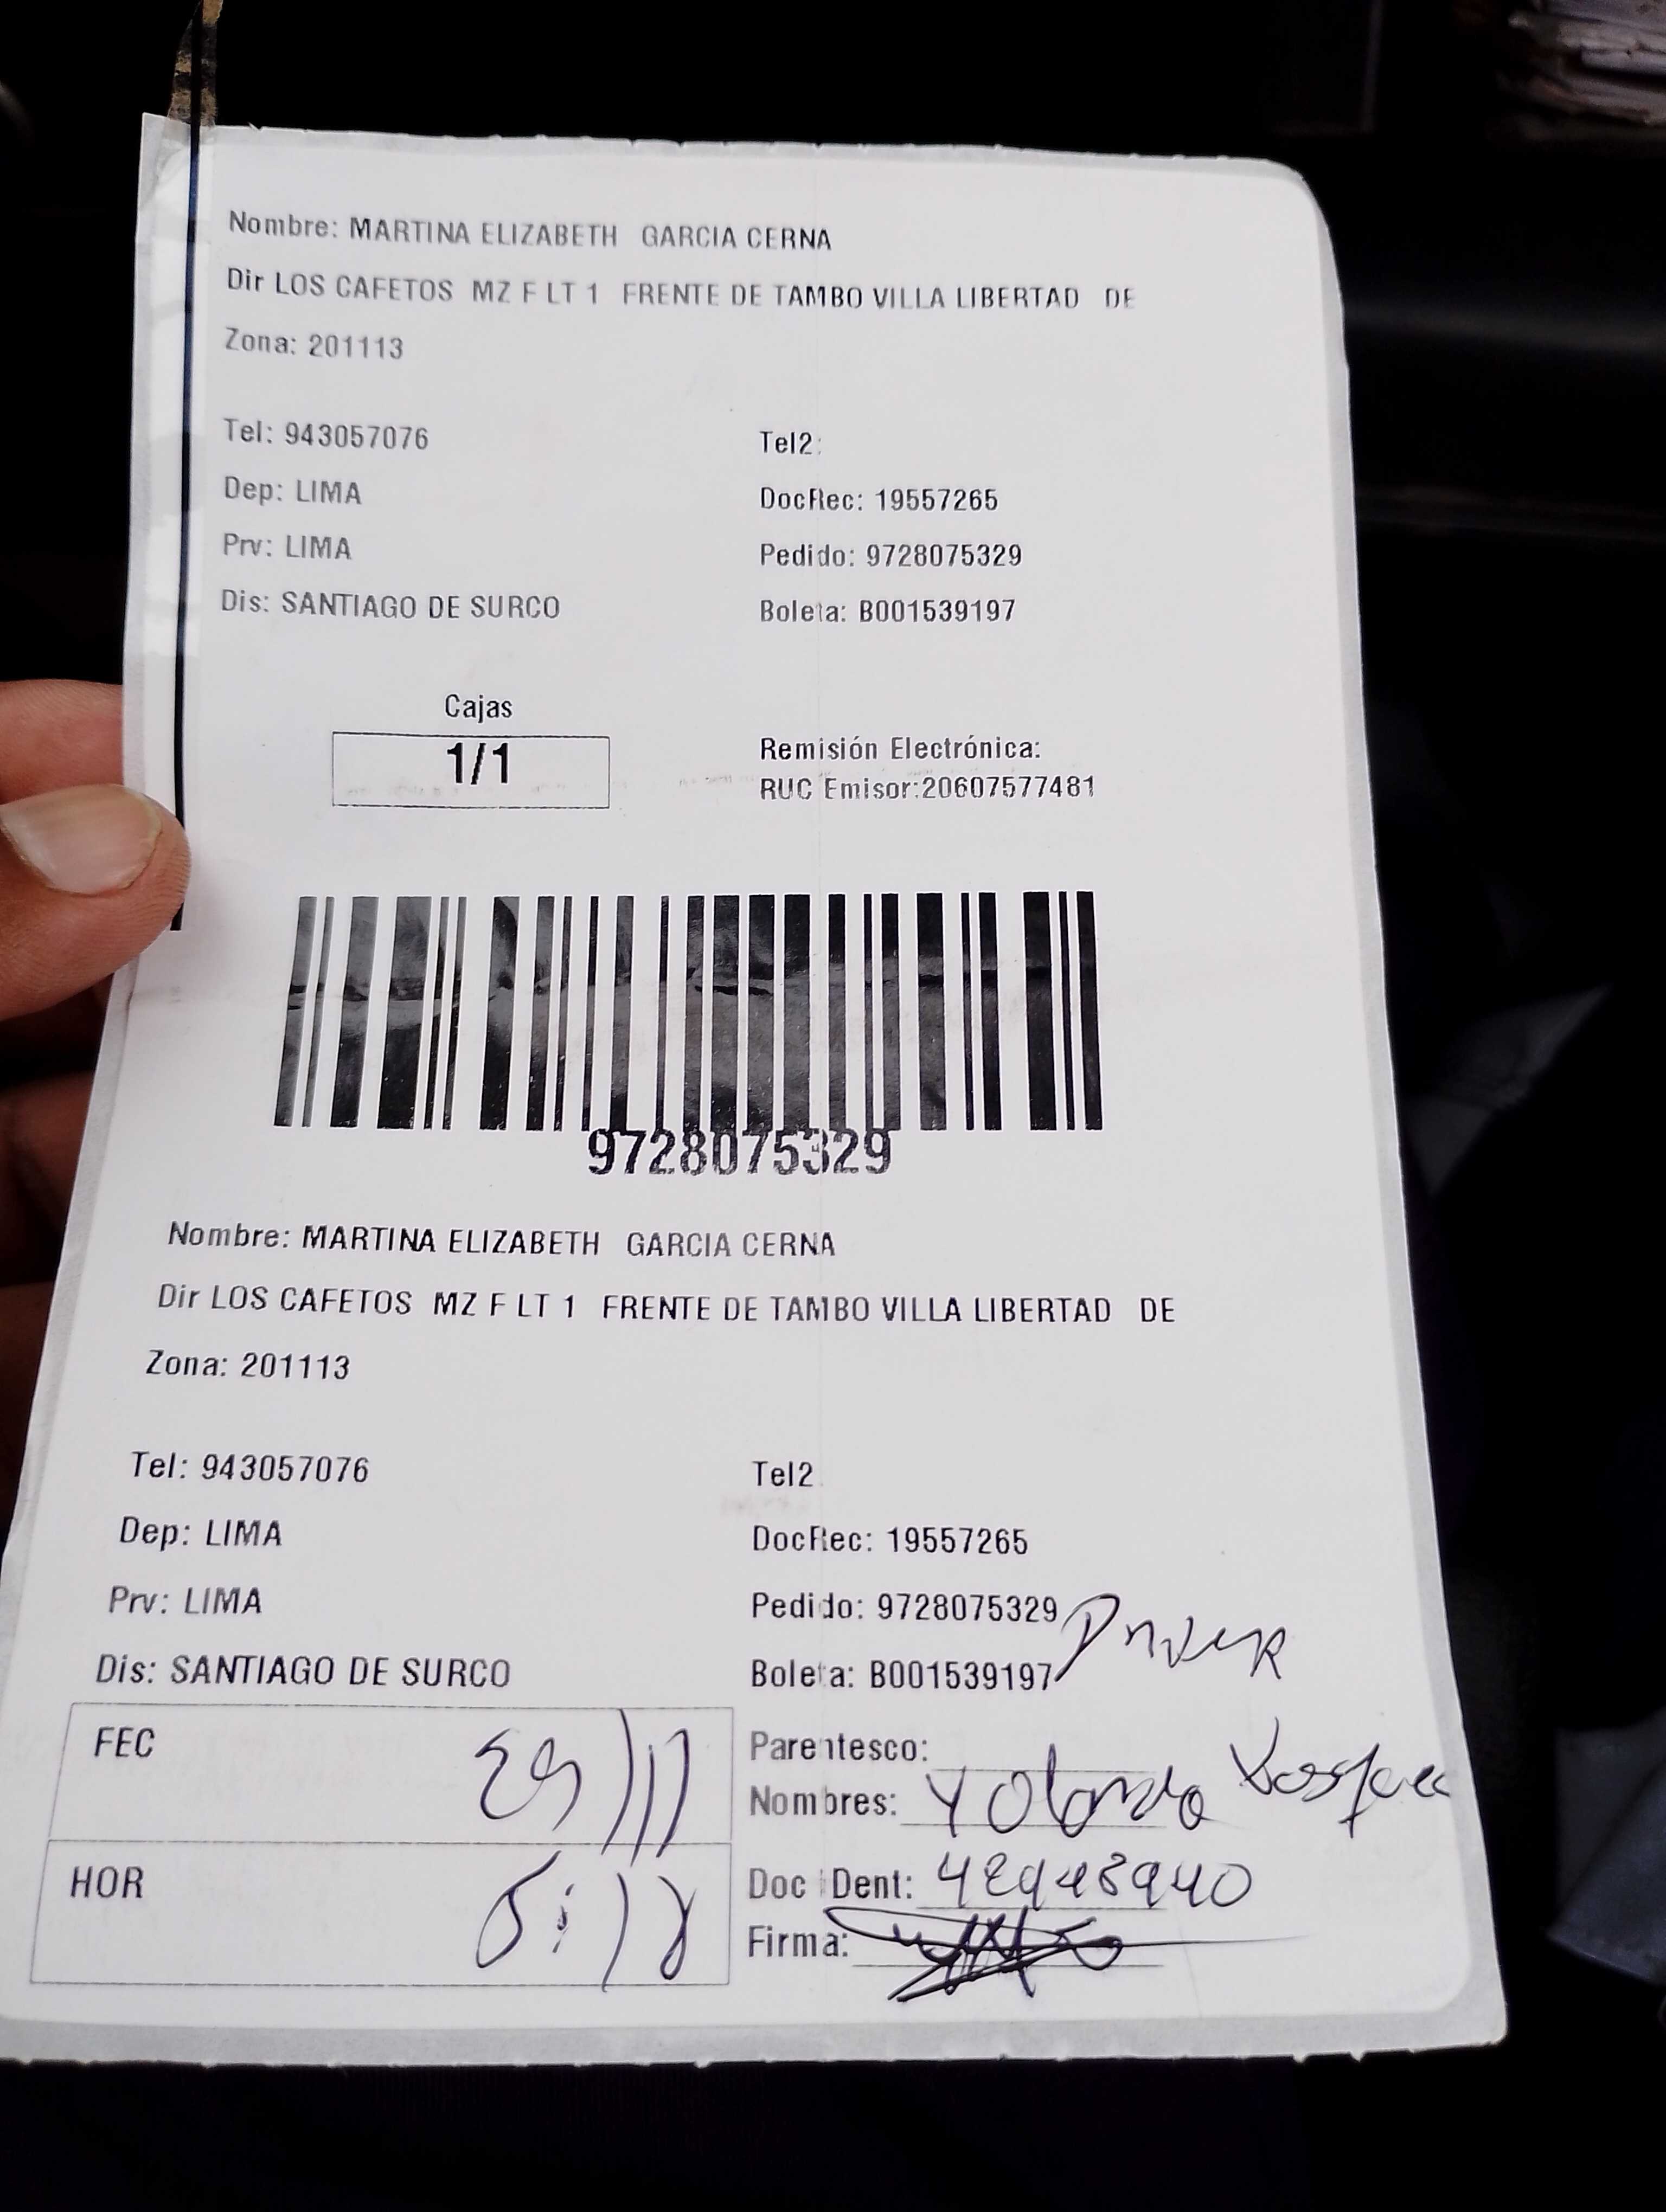 Nombre: MARTINA ELIZABETH GARCIA CERNA
Dir LOS CAFETOS MZ F LT 1 FRENTE DE TAMBO VILLA LIBERTAD DE
Zona: 201113
Tel: 943057076 Tel2:
Dep: LIMA DocRec: 19557265
Prv: LIMA Pedido: 9728075329
Dis: SANTIAGO DE SURCO Boleta: B001539197
Cajas
1/1
Remisión Electrónica:
RUC Emisor:20607577481
9728075329
Nombre: MARTINA ELIZABETH GARCIA CERNA
Dir LOS CAFETOS MZ F LT 1 FRENTE DE TAMBO VILLA LIBERTAD DE
Zona: 201113
Tel: 943057076 Tel2
Dep: LIMA DocRec: 19557265
Prv: LIMA Pedido: 9728075329
Dis: SANTIAGO DE SURCO Boleta: B001539197
FEC
Parentesco:
Nombres: Yolanda
HOR
Doc Dent: 42948940
Firma: